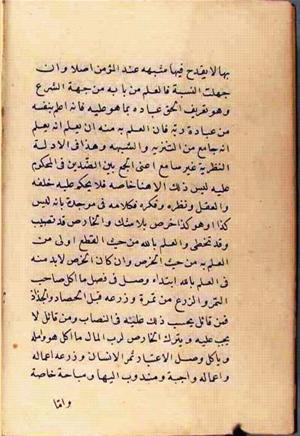 بها لا يقدح فيها متشبهه عند المؤمن اصلا وان
جهلت النسبة فالعلم من بابه من جهة الشرع
وهو تعريف الحق عباده بما هو عليه فانه اعلم بنفسه
من عباده به فان العلم به منه ان يعلم انه يعلم
انه جامع من التنزيه والتشبيه وهذا في الادلة
النظرية غير سائغ اعنى الجمع بين الضدين في المحكوم
عليه ليس ذلك الا هنا خاصة فلا يحكم عليه خلقه
والعقل ونظره وفكره فكلامه في موجدة بانه ليس
كذا او هو كذا خرص بلا شك والخارص قد تصيب
وقد تخطى والعلم بالله من حيث القطع اولى من
العلم به من حيث الخرص وان كان الخرص لابد منه
في العلم بالله ابتداء وصل في فصل ما اكل صاحب
التمر والزرع من تمرة وزرعه قبل الحصاد والجذاذ
فمن قائل يحسب ذلك عليه في النصاب ومن قائل لا
يجب عليه ويترك الخارص لرب المال ما اكل هو واهله
وياكل وصل الاعتبار ثمر الانسان وزرعه اعماله
واعماله واجبة ومندوب اليها ومباحة خاصة
واما